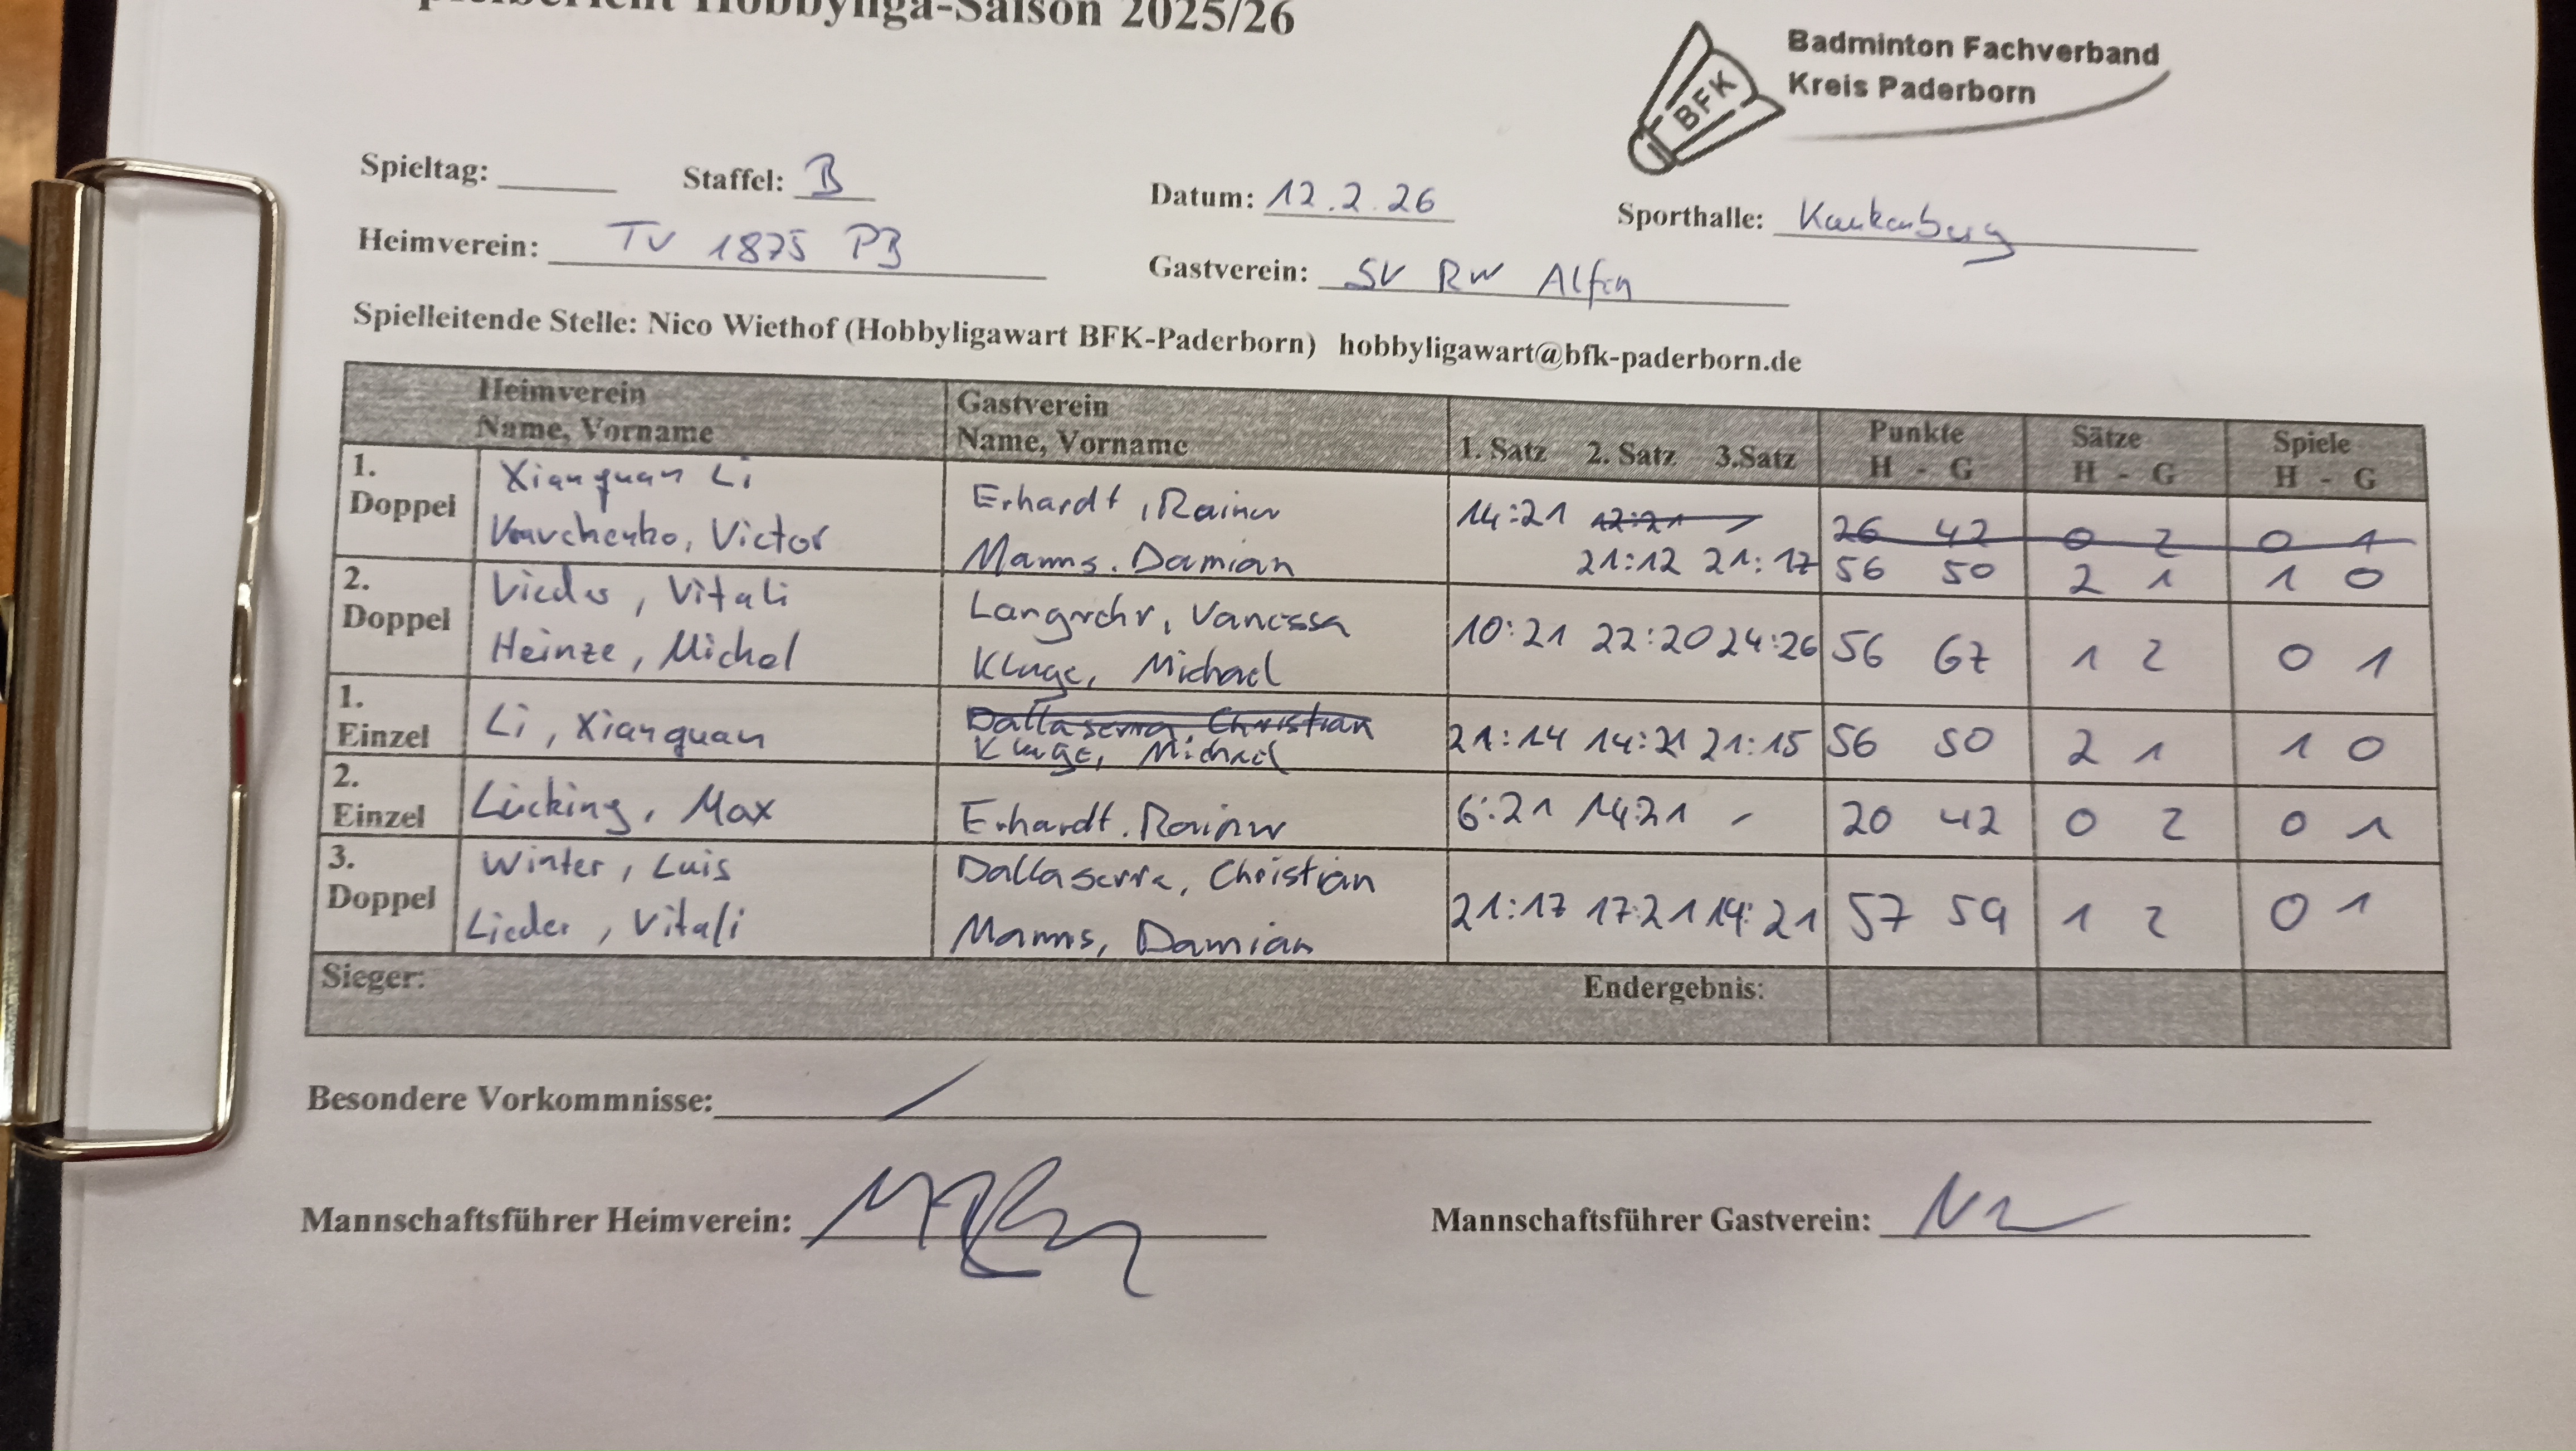 Spielbericht Hobbyliga-Saison 2025/26
Badminton Fachverband
Kreis Paderborn
BFK
Spieltag: Staffel: B
Datum: 12.2.26
Sporthalle: Kaukenberg
Heimverein: TV 1875 PB
Gastverein: SV RW Alfen
Spielleitende Stelle: Nico Wiethof (Hobbyligawart BFK-Paderborn) hobbyligawart@bfk-paderborn.de
Heimverein Gastverein Punkte Sätze Spiele
Name, Vorname Name, Vorname 1. Satz 2. Satz 3.Satz H - G H - G H - G
1. Xianquan Li Erhardt, Rainer 14:21 12:21 26 42 0 2 0 1
Doppel Victor Manns, Damian 21:12 21:17 56 50 2 1 1 0
2. Vitali Langrehr, Vanessa 10:21 22:20 24:26 56 67 1 2 0 1
Doppel Heinze, Michel Kluge, Michael
1. Dallaserra, Christian
Einzel Li, Xianquan Kluge, Michael 21:14 14:21 21:15 56 50 2 1 1 0
2.
Einzel Lücking, Max Erhardt, Rainer 6:21 14:21 - 20 42 0 2 0 1
3. Winter, Luis Dallaserra, Christian 21:17 17:21 19:21 57 59 1 2 0 1
Doppel Lieder, Vitali Manns, Damian
Sieger: Endergebnis:
Besondere Vorkommnisse:
Mannschaftsführer Heimverein:
Mannschaftsführer Gastverein: